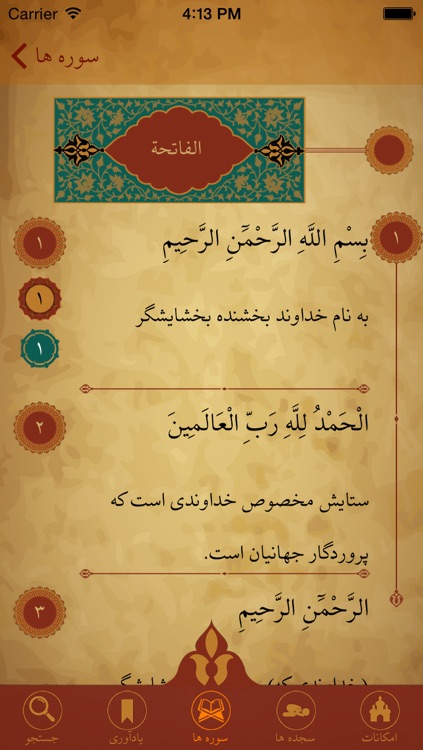 Carrier 4:13 PM
سوره ها
الفاتحة
١
بِسْمِ اللَّهِ الرَّحْمَٰنِ الرَّحِيمِ
١
١
١
به نام خداوند بخشنده بخشایشگر
الْحَمْدُ لِلَّهِ رَبِّ الْعَالَمِينَ
٢
ستایش مخصوص خداوندی است که
پروردگار جهانیان است.
الرَّحْمَٰنِ الرَّحِيمِ
٣
امکانات
سجده ها
سوره ها
یادآوری
جستجو